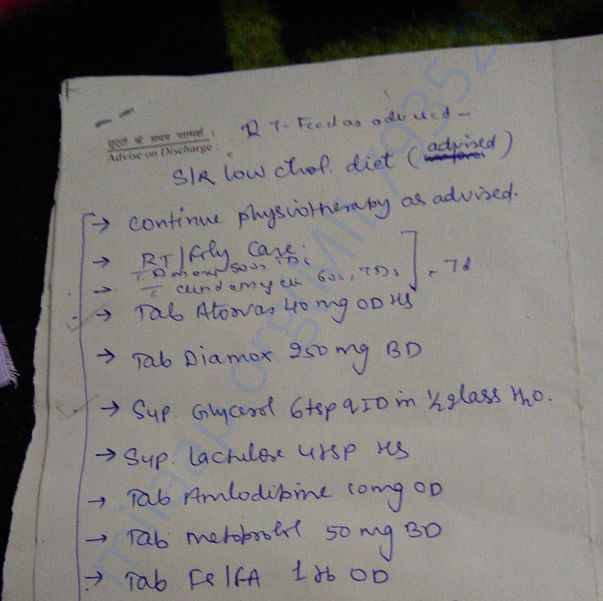 छुट्टी के समय परामर्श :
Advise on Discharge :
RT-Feed as advised -
S/R low chol. diet (advised)
→ continue physiotherapy as advised.
→ RT/Foley Care.
500 TDS
→ T 600, TDS - 7d
→ Tab Atorvas 40 mg OD HS
→ Tab Diamox 250 mg BD
→ Syp. Glycerol 6tsp QID in 1/2 glass H2O.
→ Syp. lactulose 4tsp HS
→ Tab Amlodipine 10mg OD
→ Tab metoprolol 50 mg BD
→ Tab FS/FA 1 tb OD